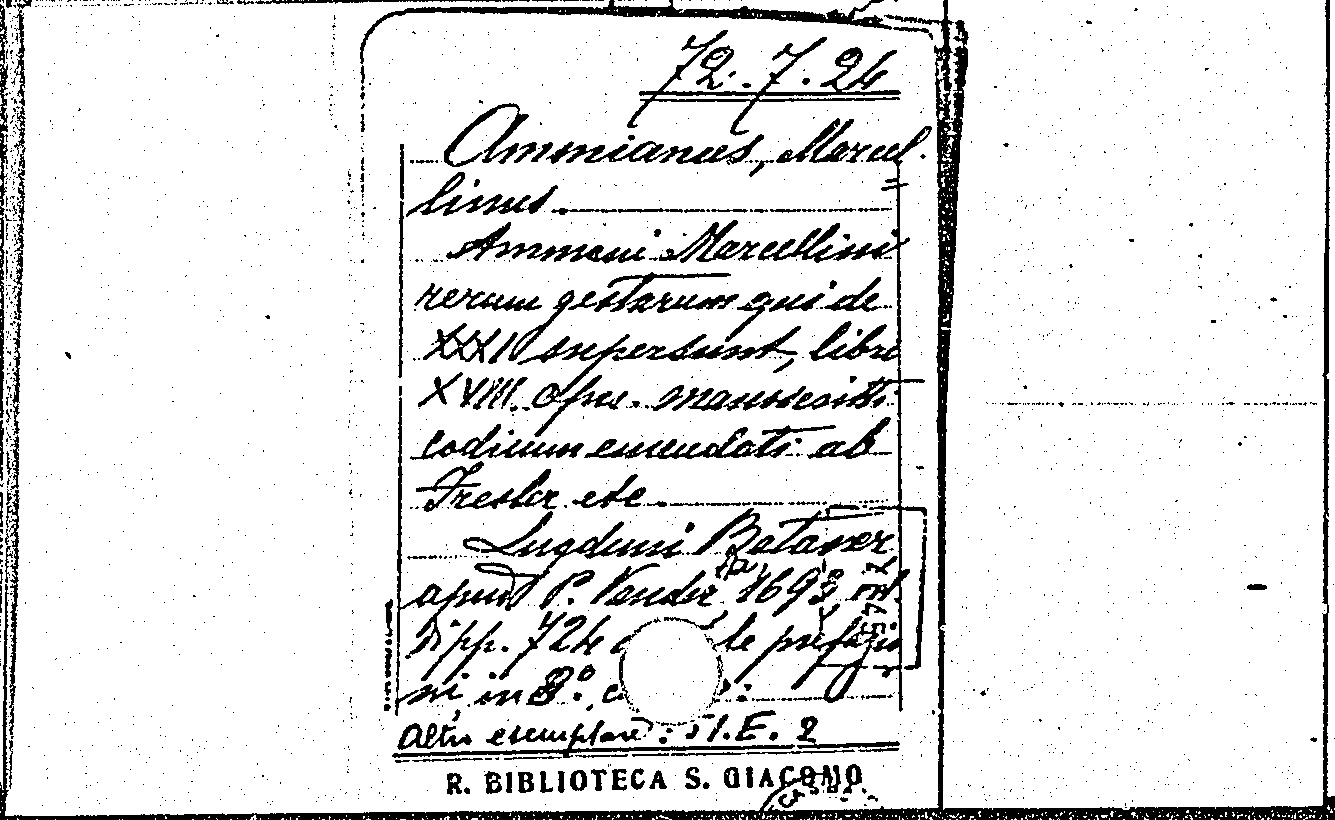 72.7.24
Ammianus, Marcel=
linus.
Ammiani Marcellini
rerum gestarum qui de
XXXI supersunt, libri
XVIII. ope. manuscritti
codicum emendati ab
etc.
Lugduni Batavor
apud P. Vander 1693
di pp. 724 le prefazio
ni, in 8°.
Altro esemplare: 51.E.2
R. BIBLIOTECA S. GIACOMO